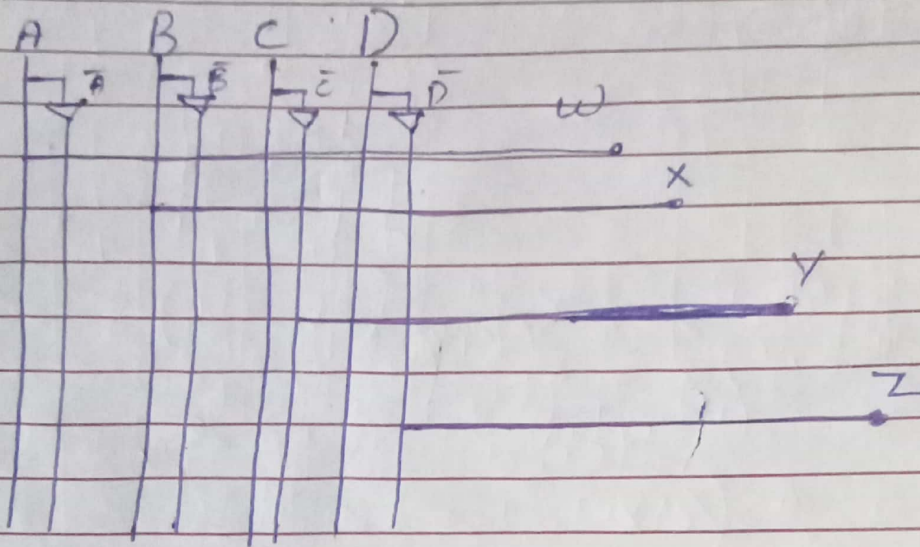 A B C D
Ā B̄ C̄ D̄
W
X
Y
Z